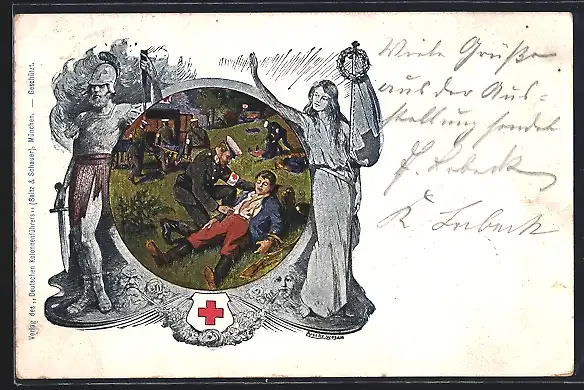 Verlag des „Deutschen Kolonnenführers“ (Seitz & Schauer), München. — Geschützt.
Viele Grüße
aus der Aus-
stellung sendet
F. Lubeck
K. Lubeck